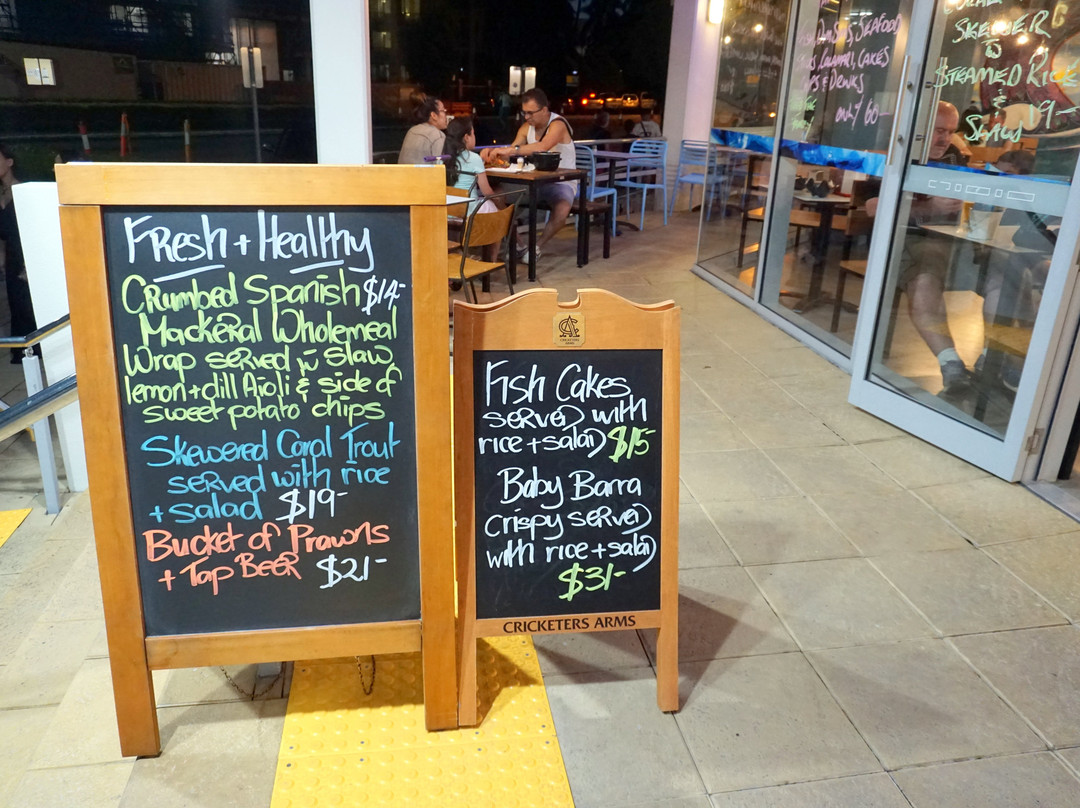 Fresh + Healthy
Crumbed Spanish $14-
Mackeral Wholemeal
Wrap served w slaw,
lemon + dill Aioli & side of
sweet potato chips
Skewered Coral Trout
served with rice
+ salad $19-
Bucket of Prawns
+ Tap Beer $21-
CRICKETERS ARMS
Fish Cakes
served with
rice + salad $15
Baby Barra
crispy served
with rice + salad
$31-
CRICKETERS ARMS
SEAFOOD
CALAMARI, CAKES
& DRINKS
only 60-
SKEWER
STEAMED RICE
&
SLAW 19-